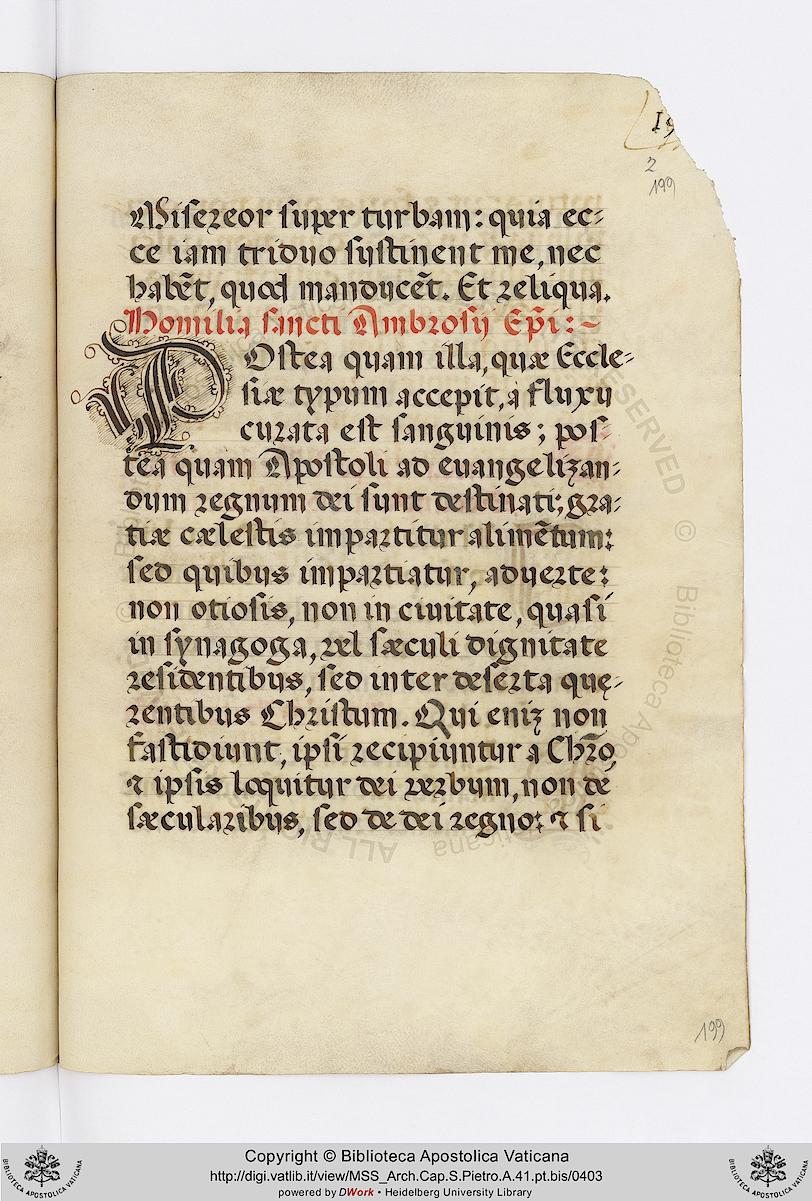 19
2
199
Misereor super turbam: quia ec-
ce iam triduo sustinent me, nec
habēt, quod manducēt. Et reliqua.
Homilia sancti Ambrosij Epī: ~
Postea quam illa, quæ Eccle-
siæ typum accepit, a fluxu
curata est sanguinis; pos-
tea quam Apostoli ad euangelizan-
dum regnum dei sunt destinati; gra-
tiæ cælestis impartitur alimētum:
sed quibus impartiatur, aduerte:
non otiosis, non in ciuitate, quasi
in synagoga, vel sæculi dignitate
residentibus, sed inter deserta quę-
rentibus Christum. Qui eniz non
fastidiunt, ipsi recipiuntur a Chrō,
⁊ ipsis loquitur dei verbum, non de
sæcularibus, sed de dei regno: ⁊ si
199
Copyright © Biblioteca Apostolica Vaticana
http://digi.vatlib.it/view/MSS_Arch.Cap.S.Pietro.A.41.pt.bis/0403
powered by DWork • Heidelberg University Library
BIBLIOTECA APOSTOLICA VATICANA
BIBLIOTECA APOSTOLICA VATICANA